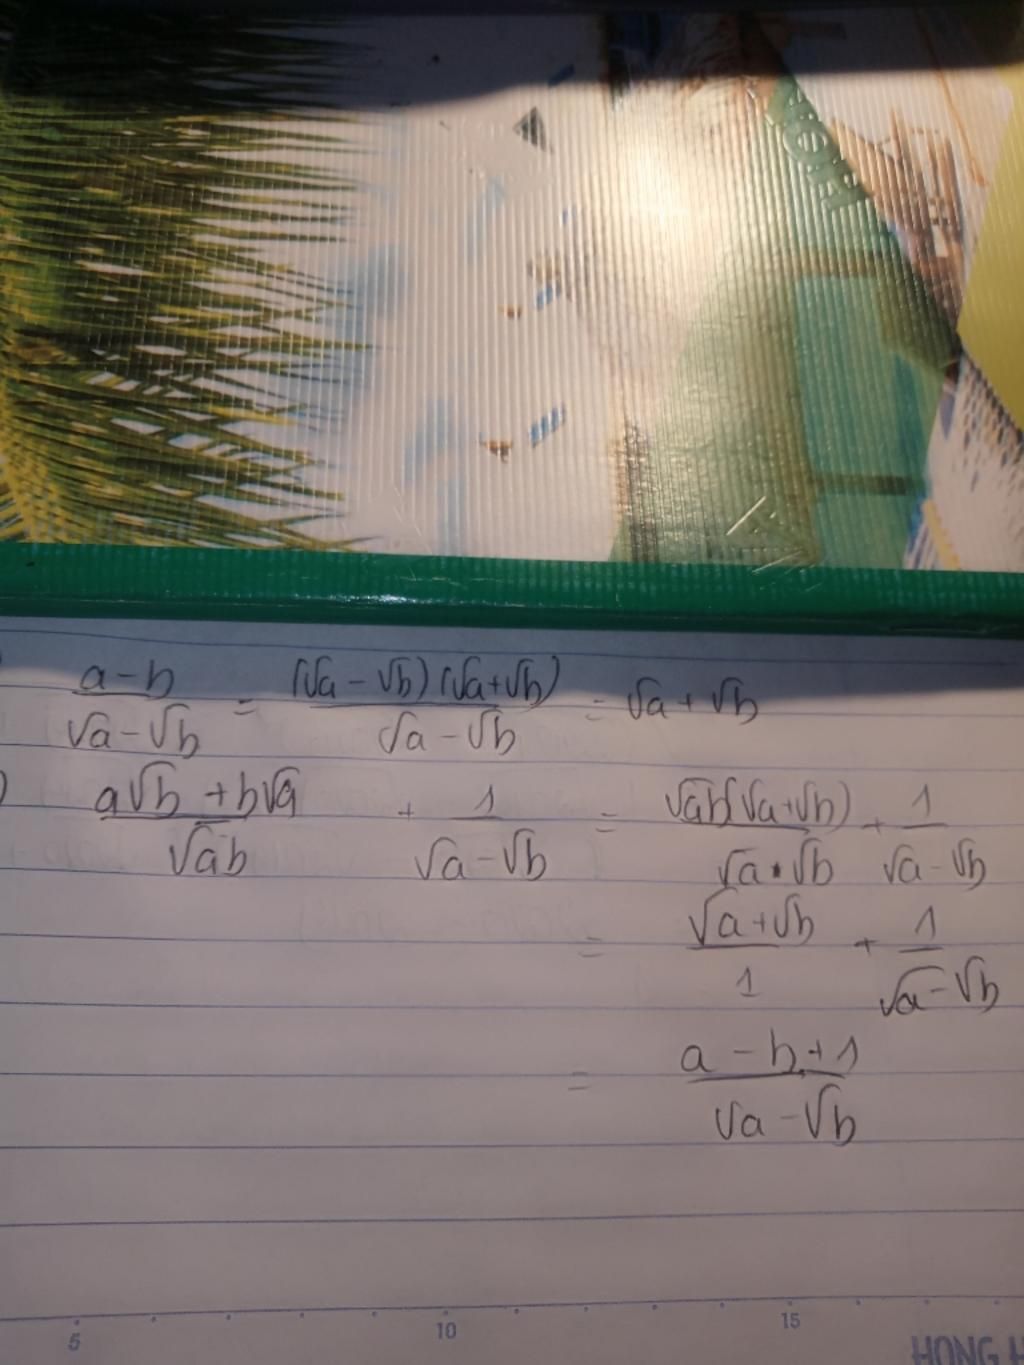 a-b/√a-√b = (√a-√b)(√a+√b)/√a-√b = √a+√b
) a√b+b√a/√ab + 1/√a-√b = √ab(√a+√b)/√a.√b + 1/√a-√b
= √a+√b/1 + 1/√a-√b
= a-b+1/√a-√b
5 10 15
HONG H